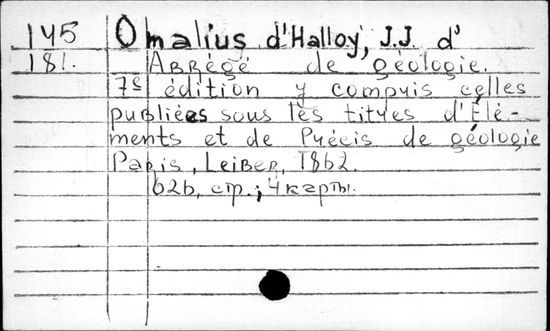 145 Omalius d'Halloy, J.J. d'
181. Abrégé de géologie.
7e édition y compris celles
publiées sous les titres d'Élé-
ments et de Précis de géologie
Paris, Leiber, 1862.
626, стр.; 4 карты.